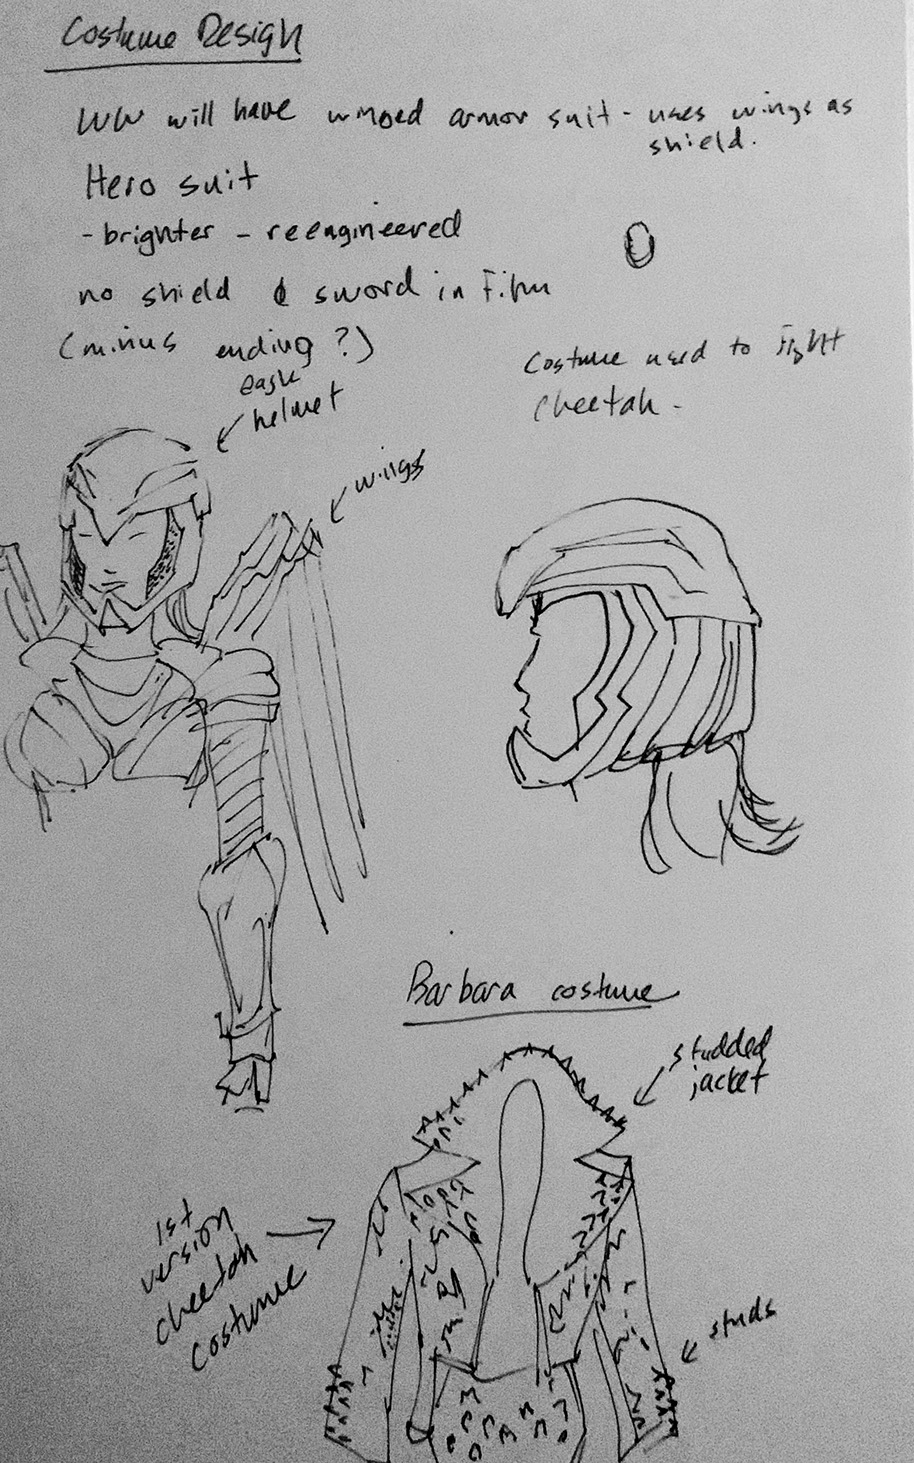 Costume Design
WW will have winged armor suit - uses wings as
shield.
Hero suit
- brighter - reengineered
no shield & sword in Film
(minus ending?)
Costume used to Fight
Cheetah -
helmet
wings
Barbara costume
studded
jacket
1st
version
cheetah
costume
studs